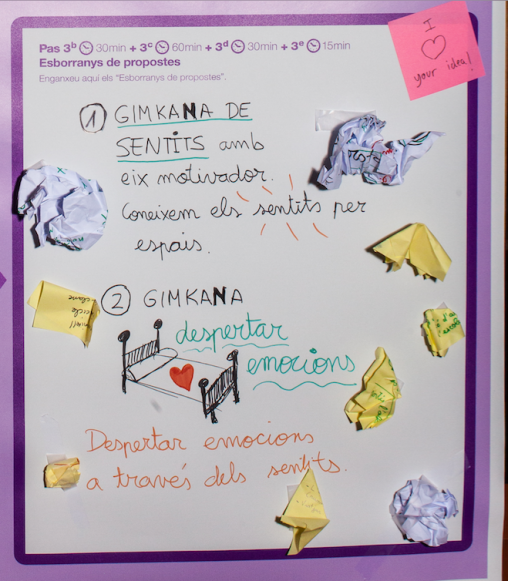 Pas 3b 30min + 3c 60min + 3d 30min + 3e 15min
Esborranys de propostes
Enganxeu aquí els "Esborranys de propostes".
I
♡
your idea!
1 GIMKANA DE
SENTITS amb
eix motivador.
Coneixem els sentits per
espais.
2 GIMKANA
despertar
emocions
Despertar emocions
a través dels sentits.